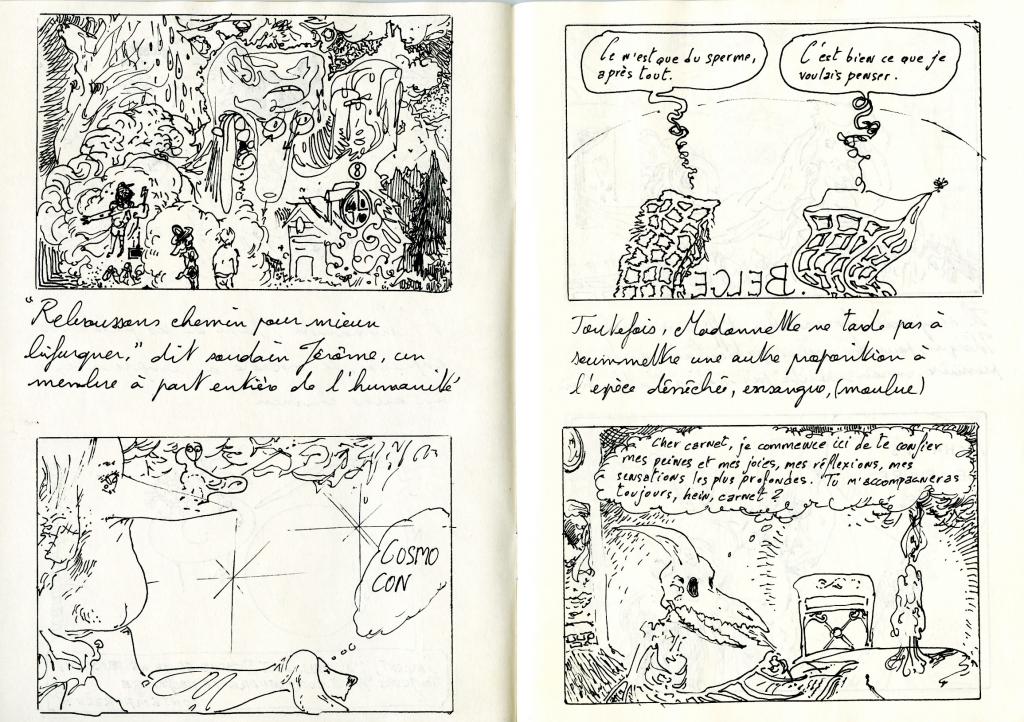 8
"Rebroussons chemin pour mieux
bifurquer," dit soudain Jérôme, un
membre à part entière de l'humanité
COSMO
CON
Ce n'est que du sperme,
après tout.
C'est bien ce que je
voulais penser.
BELGE.
Toutefois, Madonnette ne tarde pas à
soummettre une autre proposition à
l'espèce désséchée, exsangue, (moulue)
Cher carnet, je commence ici de te confier
mes peines et mes joies, mes réflexions, mes
sensations les plus profondes. Tu m'accompagneras
toujours, hein, carnet ?